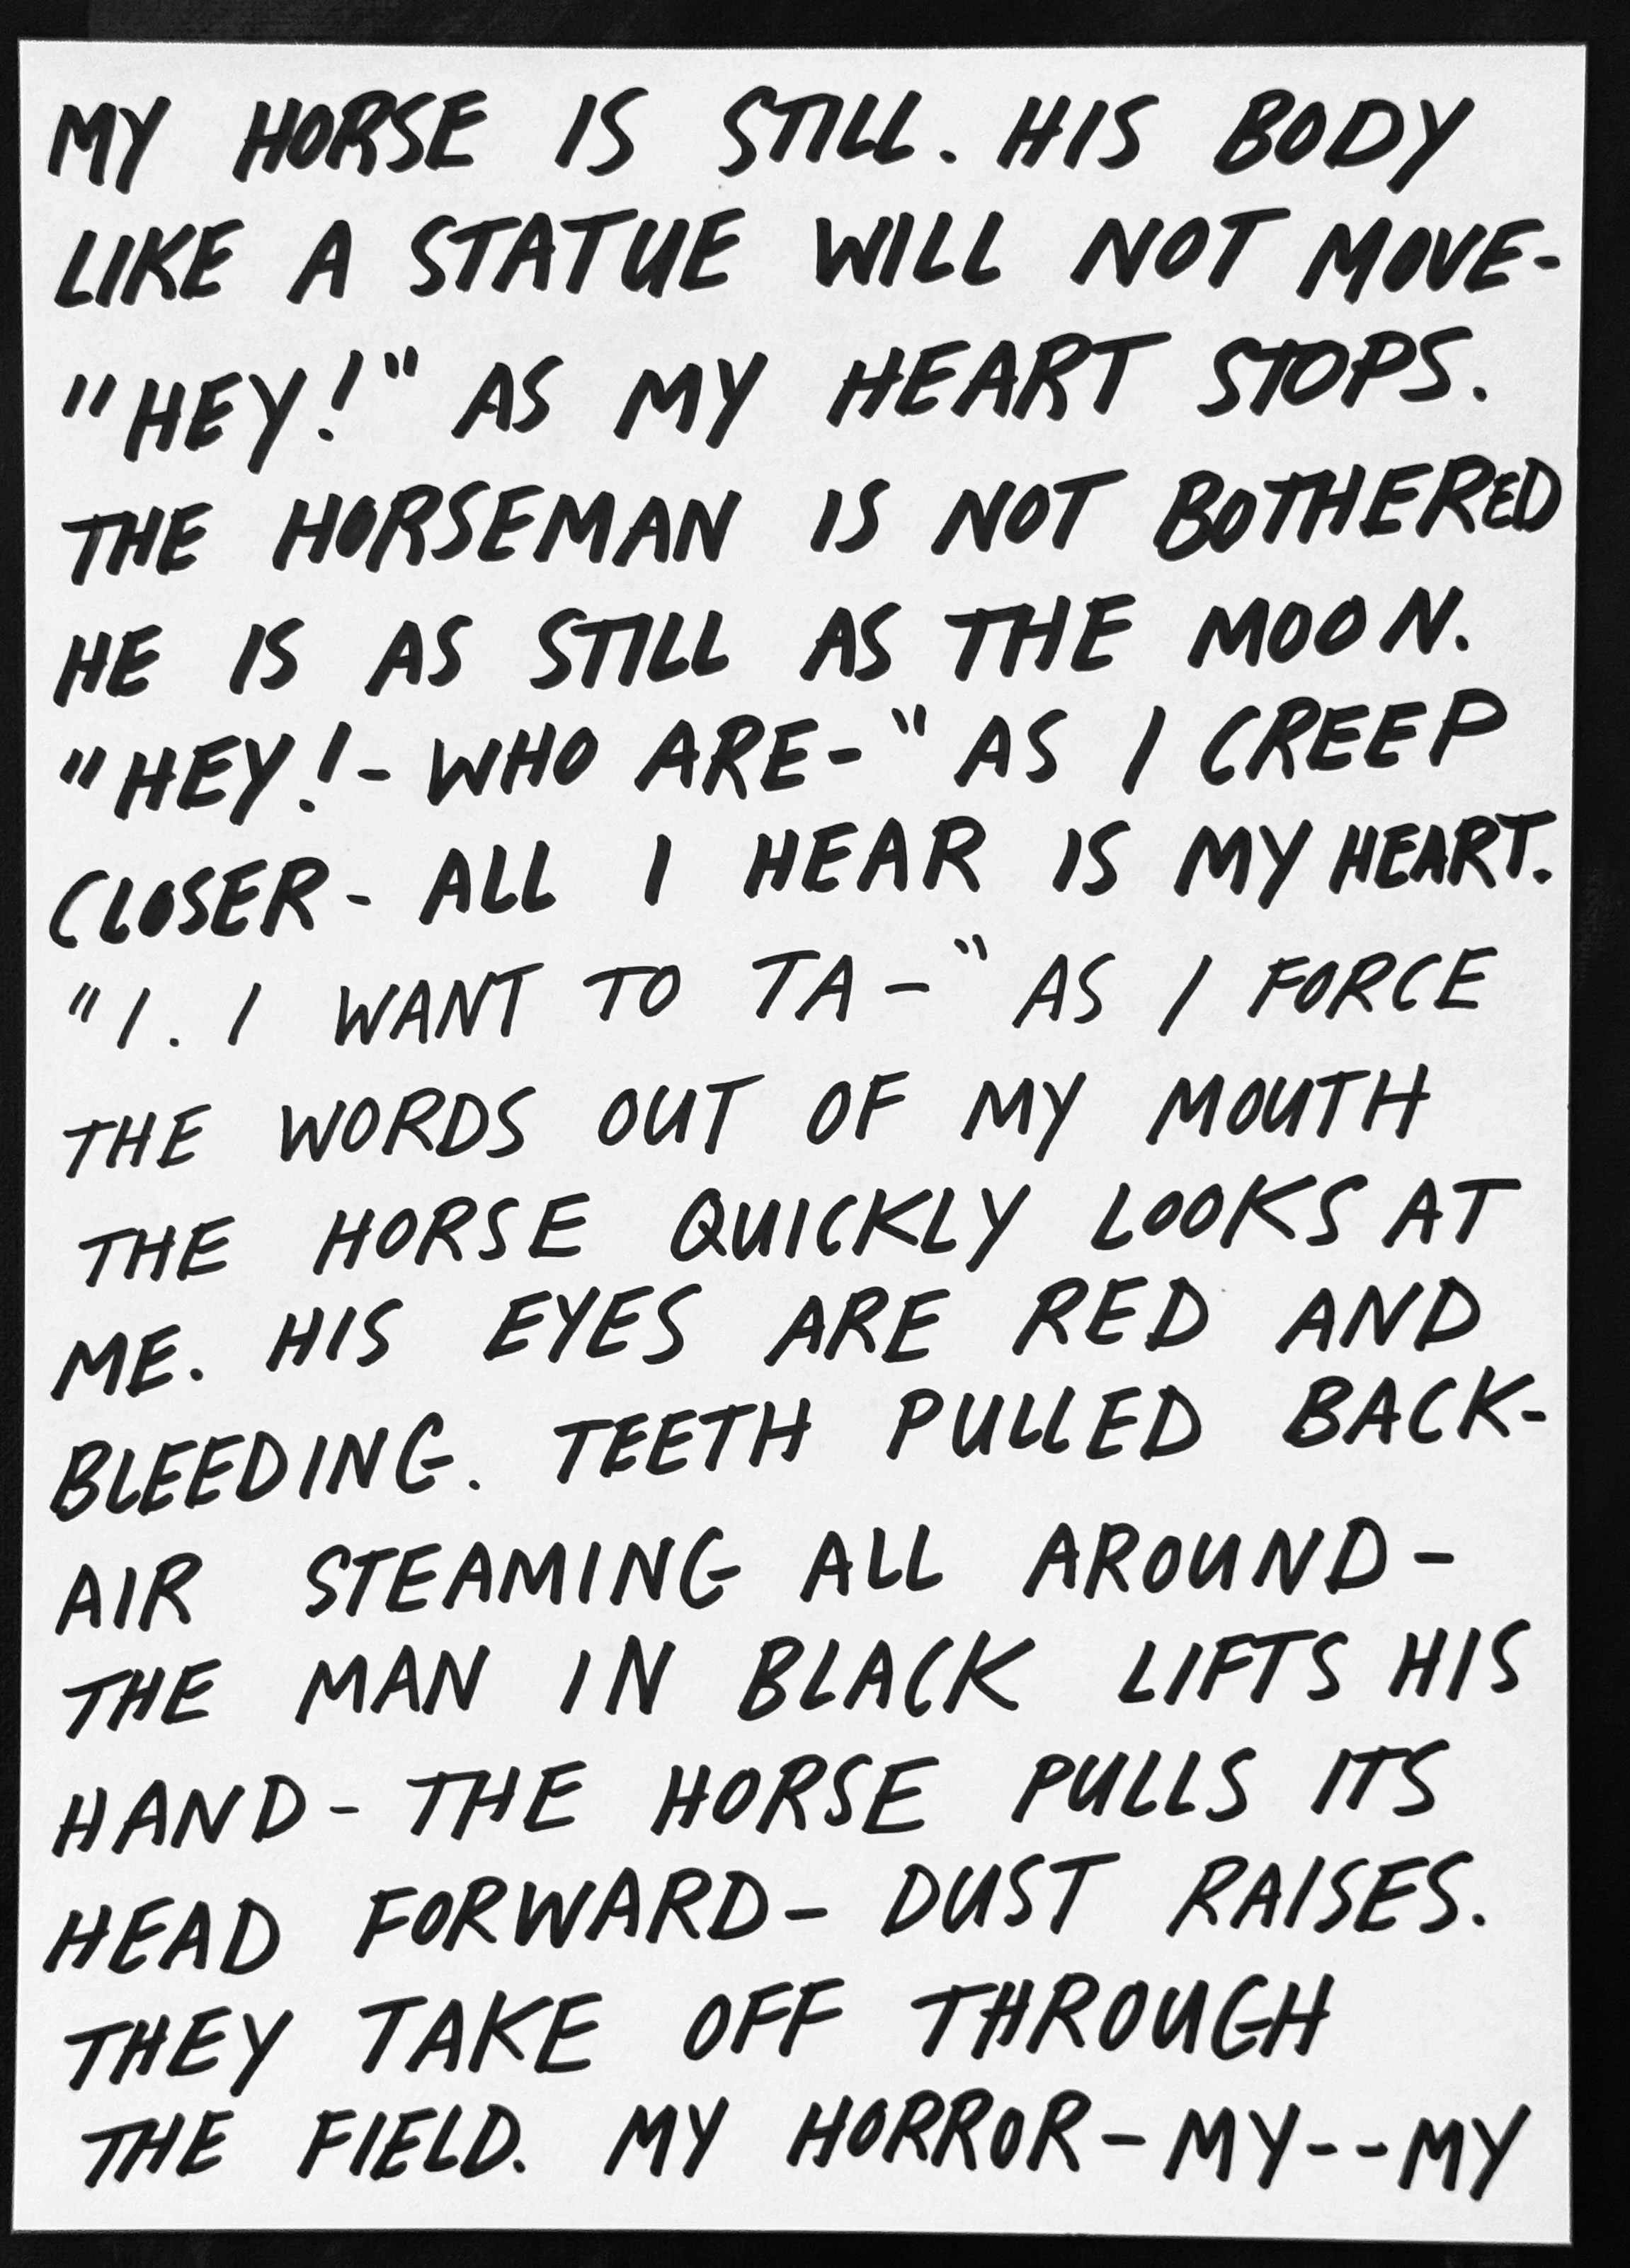 MY HORSE IS STILL. HIS BODY
LIKE A STATUE WILL NOT MOVE-
"HEY!" AS MY HEART STOPS.
THE HORSEMAN IS NOT BOTHERED
HE IS AS STILL AS THE MOON.
"HEY!- WHO ARE-" AS I CREEP
CLOSER- ALL I HEAR IS MY HEART.
"I. I WANT TO TA-" AS I FORCE
THE WORDS OUT OF MY MOUTH
THE HORSE QUICKLY LOOKS AT
ME. HIS EYES ARE RED AND
BLEEDING. TEETH PULLED BACK-
AIR STEAMING ALL AROUND-
THE MAN IN BLACK LIFTS HIS
HAND- THE HORSE PULLS ITS
HEAD FORWARD- DUST RAISES.
THEY TAKE OFF THROUGH
THE FIELD. MY HORROR-MY--MY